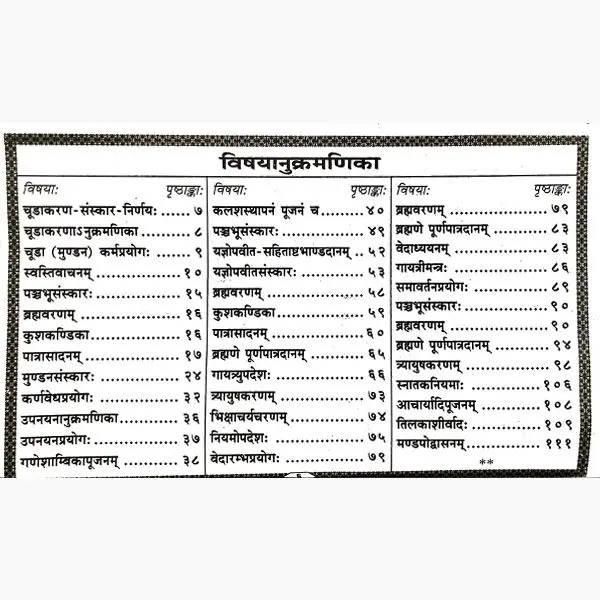 विषयानुक्रमणिका
विषयाः पृष्ठाङ्काः
चूडाकरण-संस्कार-निर्णयः ...... ७
चूडाकरणाऽनुक्रमणिका ........... ८
चूडा (मुण्डन) कर्मप्रयोगः ........ ९
स्वस्तिवाचनम् .................... १०
पञ्चभूसंस्कारः .................... १५
ब्रह्मवरणम् ....................... १६
कुशकण्डिका ...................... १६
पात्रासादनम् ...................... १७
मुण्डनसंस्कारः .................... २४
कर्णवेधप्रयोगः .................... ३२
उपनयनानुक्रमणिका .............. ३६
उपनयनप्रयोगः .................... ३७
गणेशाम्बिकापूजनम् .............. ३८
विषयाः पृष्ठाङ्काः
कलशस्थापनं पूजनं च ......... ४०
पञ्चभूसंस्कारः .................... ४९
यज्ञोपवीत-सहिताष्टभाण्डदानम् .. ५२
यज्ञोपवीतसंस्कारः ................ ५३
ब्रह्मवरणम् ....................... ५८
कुशकण्डिका ...................... ५९
पात्रासादनम् ...................... ६०
ब्रह्मणे पूर्णपात्रदानम् ............ ६५
गायत्र्युपदेशः ...................... ६६
त्र्यायुषकरणम् .................... ७३
भिक्षाचर्यचरणम् .................. ७४
नियमोपदेशः ...................... ७५
वेदारम्भप्रयोगः .................... ७९
विषयाः पृष्ठाङ्काः
ब्रह्मवरणम् ....................... ७९
ब्रह्मणे पूर्णपात्रदानम् ............ ८३
वेदाध्ययनम् ...................... ८३
गायत्रीमन्त्रः ...................... ८६
समावर्तनप्रयोगः .................. ८९
पञ्चभूसंस्कारः .................... ९०
ब्रह्मवरणम् ....................... ९०
ब्रह्मणे पूर्णपात्रदानम् ............ ९४
त्र्यायुषकरणम् .................... ९८
स्नातकनियमाः .................... १०६
आचार्यादिपूजनम् ................ १०८
तिलकाशीर्वादः .................... १०९
मण्डपोद्वासनम् .................... १११
**